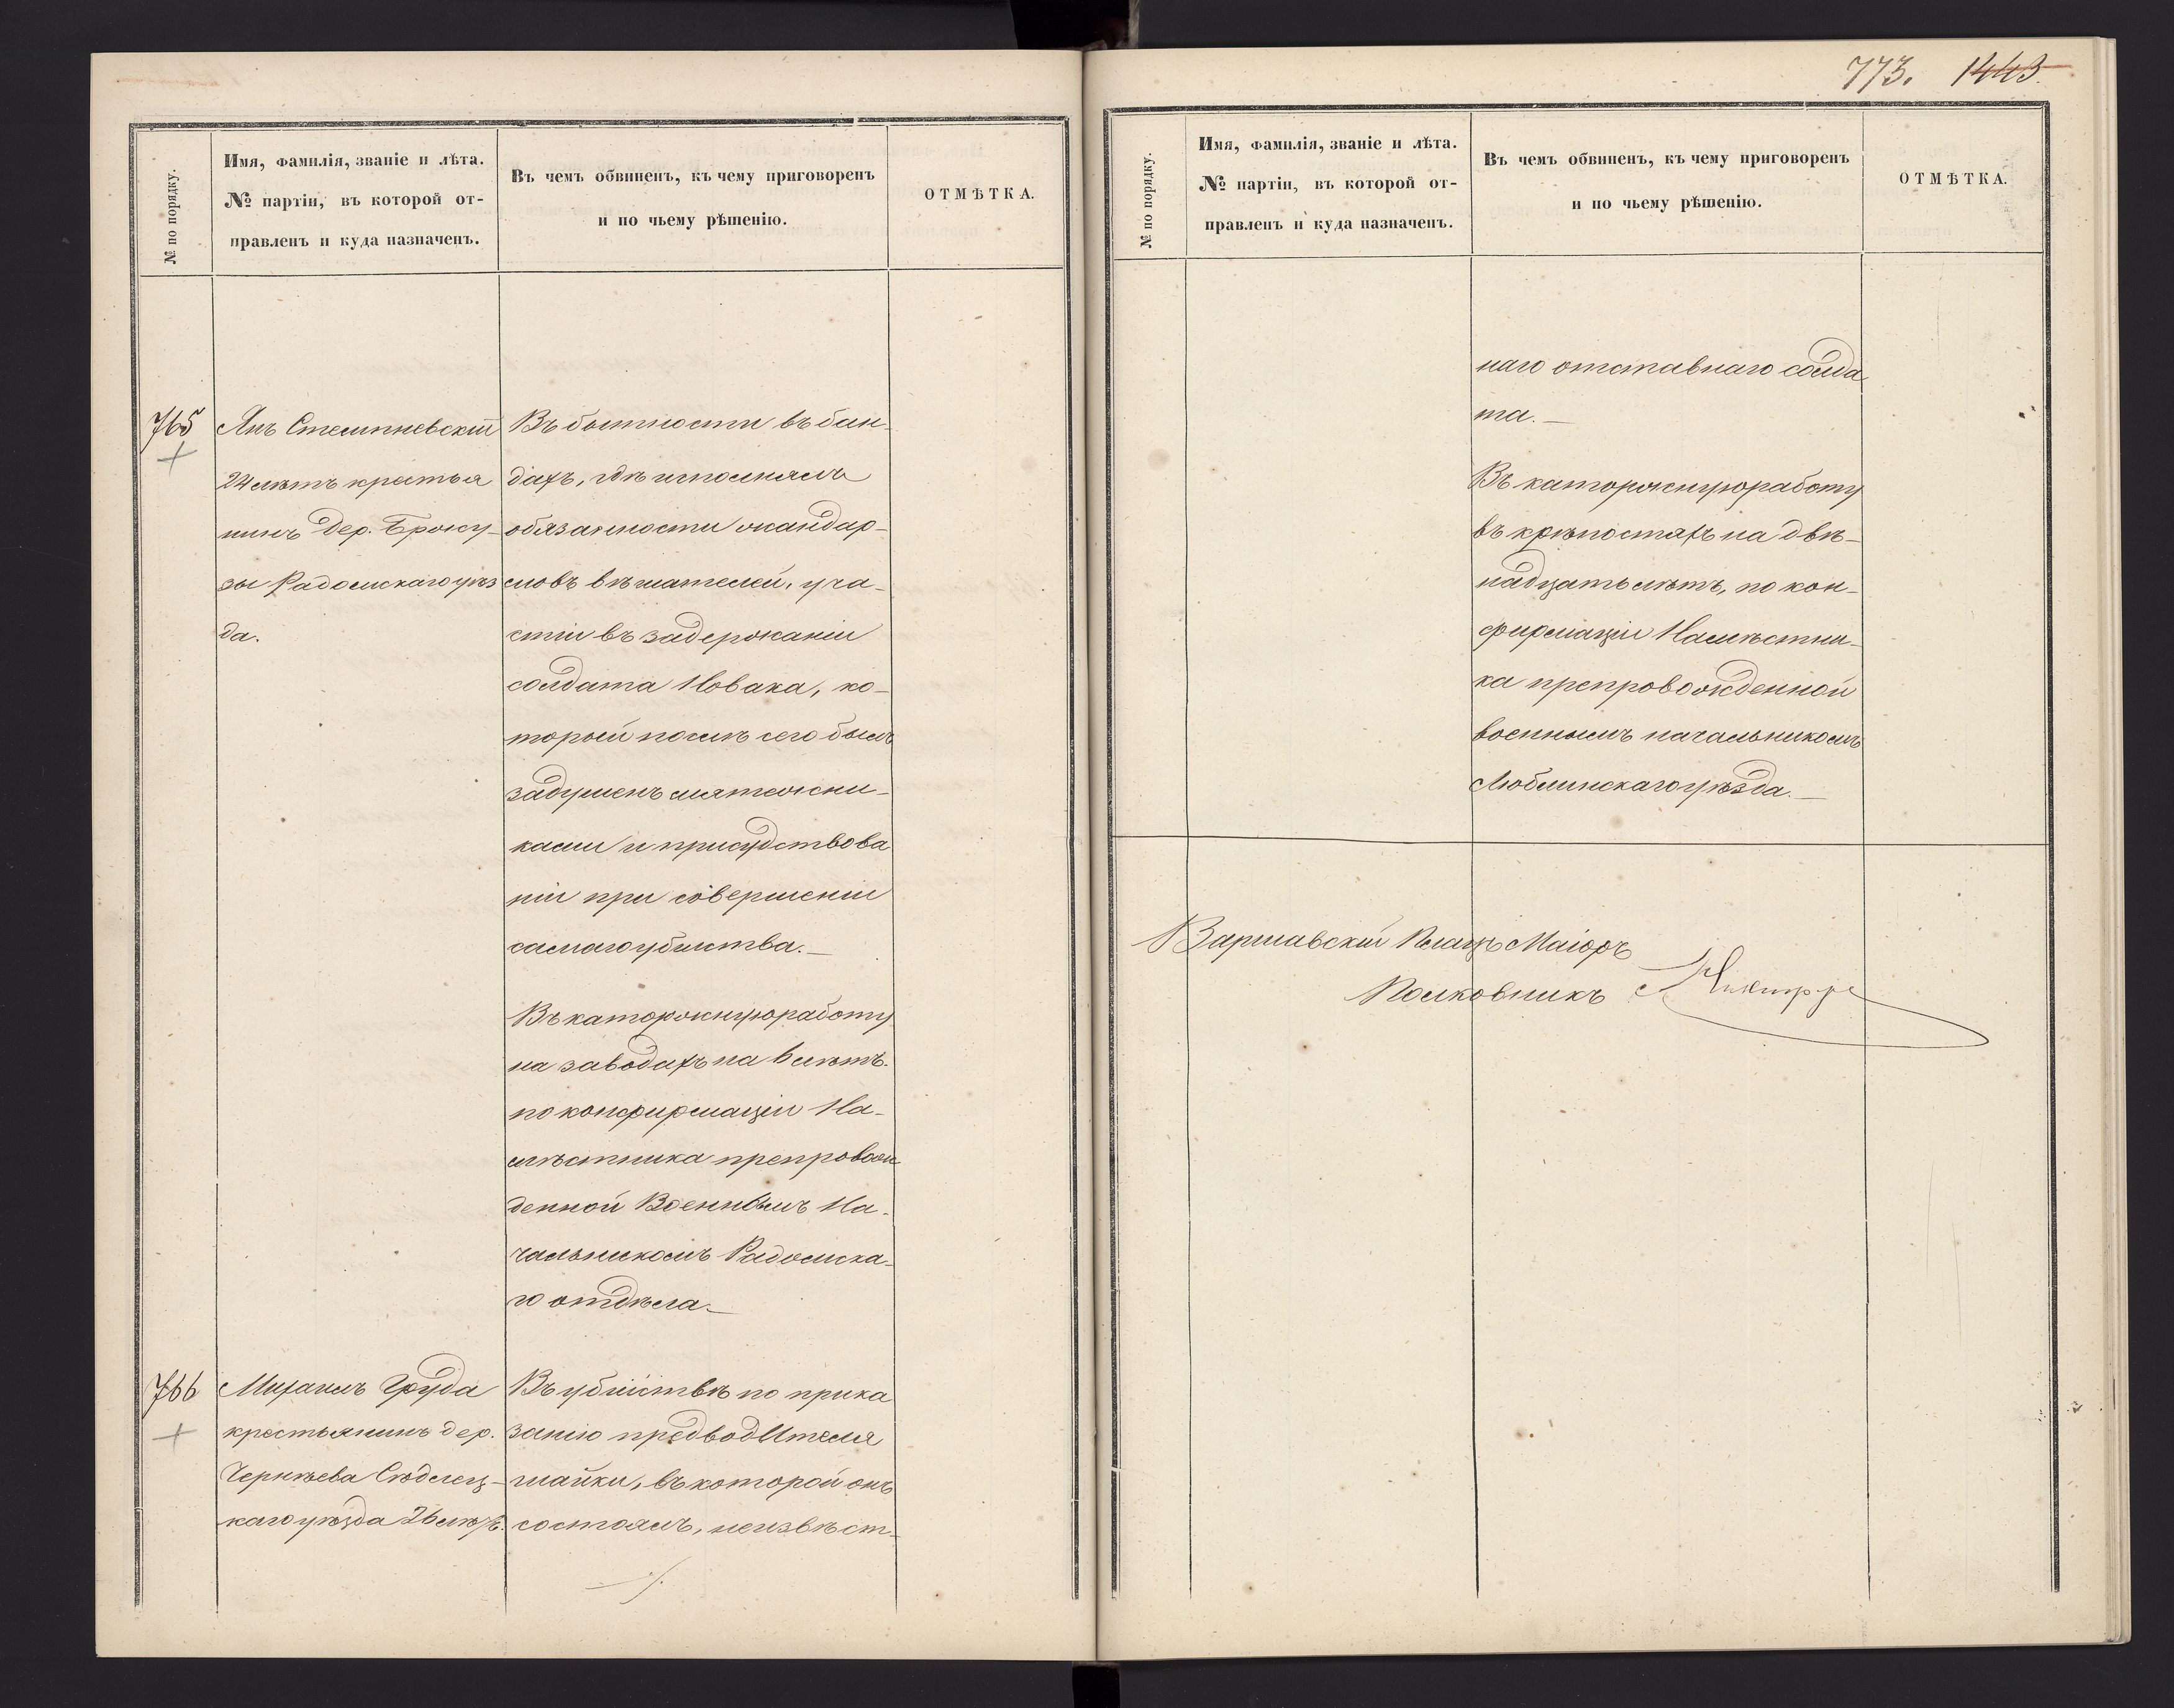 № по порядку.
Имя, фамилія, званіе и лѣта.
№ партіи, въ которой от-
правленъ и куда назначенъ.
Въ чемъ обвиненъ, къ чему приговоренъ
и по чьему рѣшенію.
ОТМѢТКА.
765
Янъ Стемпневскій
24 лѣтъ крестья
нинъ дер.
зы Радомскаго уѣз
да.
Въ бытности въ бан-
дахъ, гдѣ исполнялъ
обязанности жандар-
мовъ вѣшателей, уча-
стіи въ задержаніи
солдата Новака, ко-
торый послѣ сего былъ
задушенъ мятежни-
ками и присудствова
ніи при совершеніи
самаго убійства.—
Въ каторжную работу
на заводахъ на 6 лѣтъ.
по конфирмаціи На-
мѣстника препровож
денной Военнымъ На-
чальникомъ Радомска-
го отдѣла.—
766
Михаилъ Груда
крестьянинъ дер.
Чернѣева Сѣдлец-
каго уѣзда 26 лѣтъ.
Въ убійствѣ по прика
занію предводителя
шайки, въ которой онъ
состоялъ, неизвѣст-
./.
773. 1443.
№ по порядку.
Имя, фамилія, званіе и лѣта.
№ партіи, въ которой от-
правленъ и куда назначенъ.
Въ чемъ обвиненъ, къ чему приговоренъ
и по чьему рѣшенію.
ОТМѢТКА.
наго отставнаго солда
та.—
Въ каторжную работу
въ крѣпостяхъ на двѣ-
надцать лѣтъ, по кон-
фирмаціи Намѣстни-
ка препровожденной
военнымъ начальникомъ
Люблинскаго уѣзда.—
Варшавскій Плацъ Маіоръ
Полковникъ